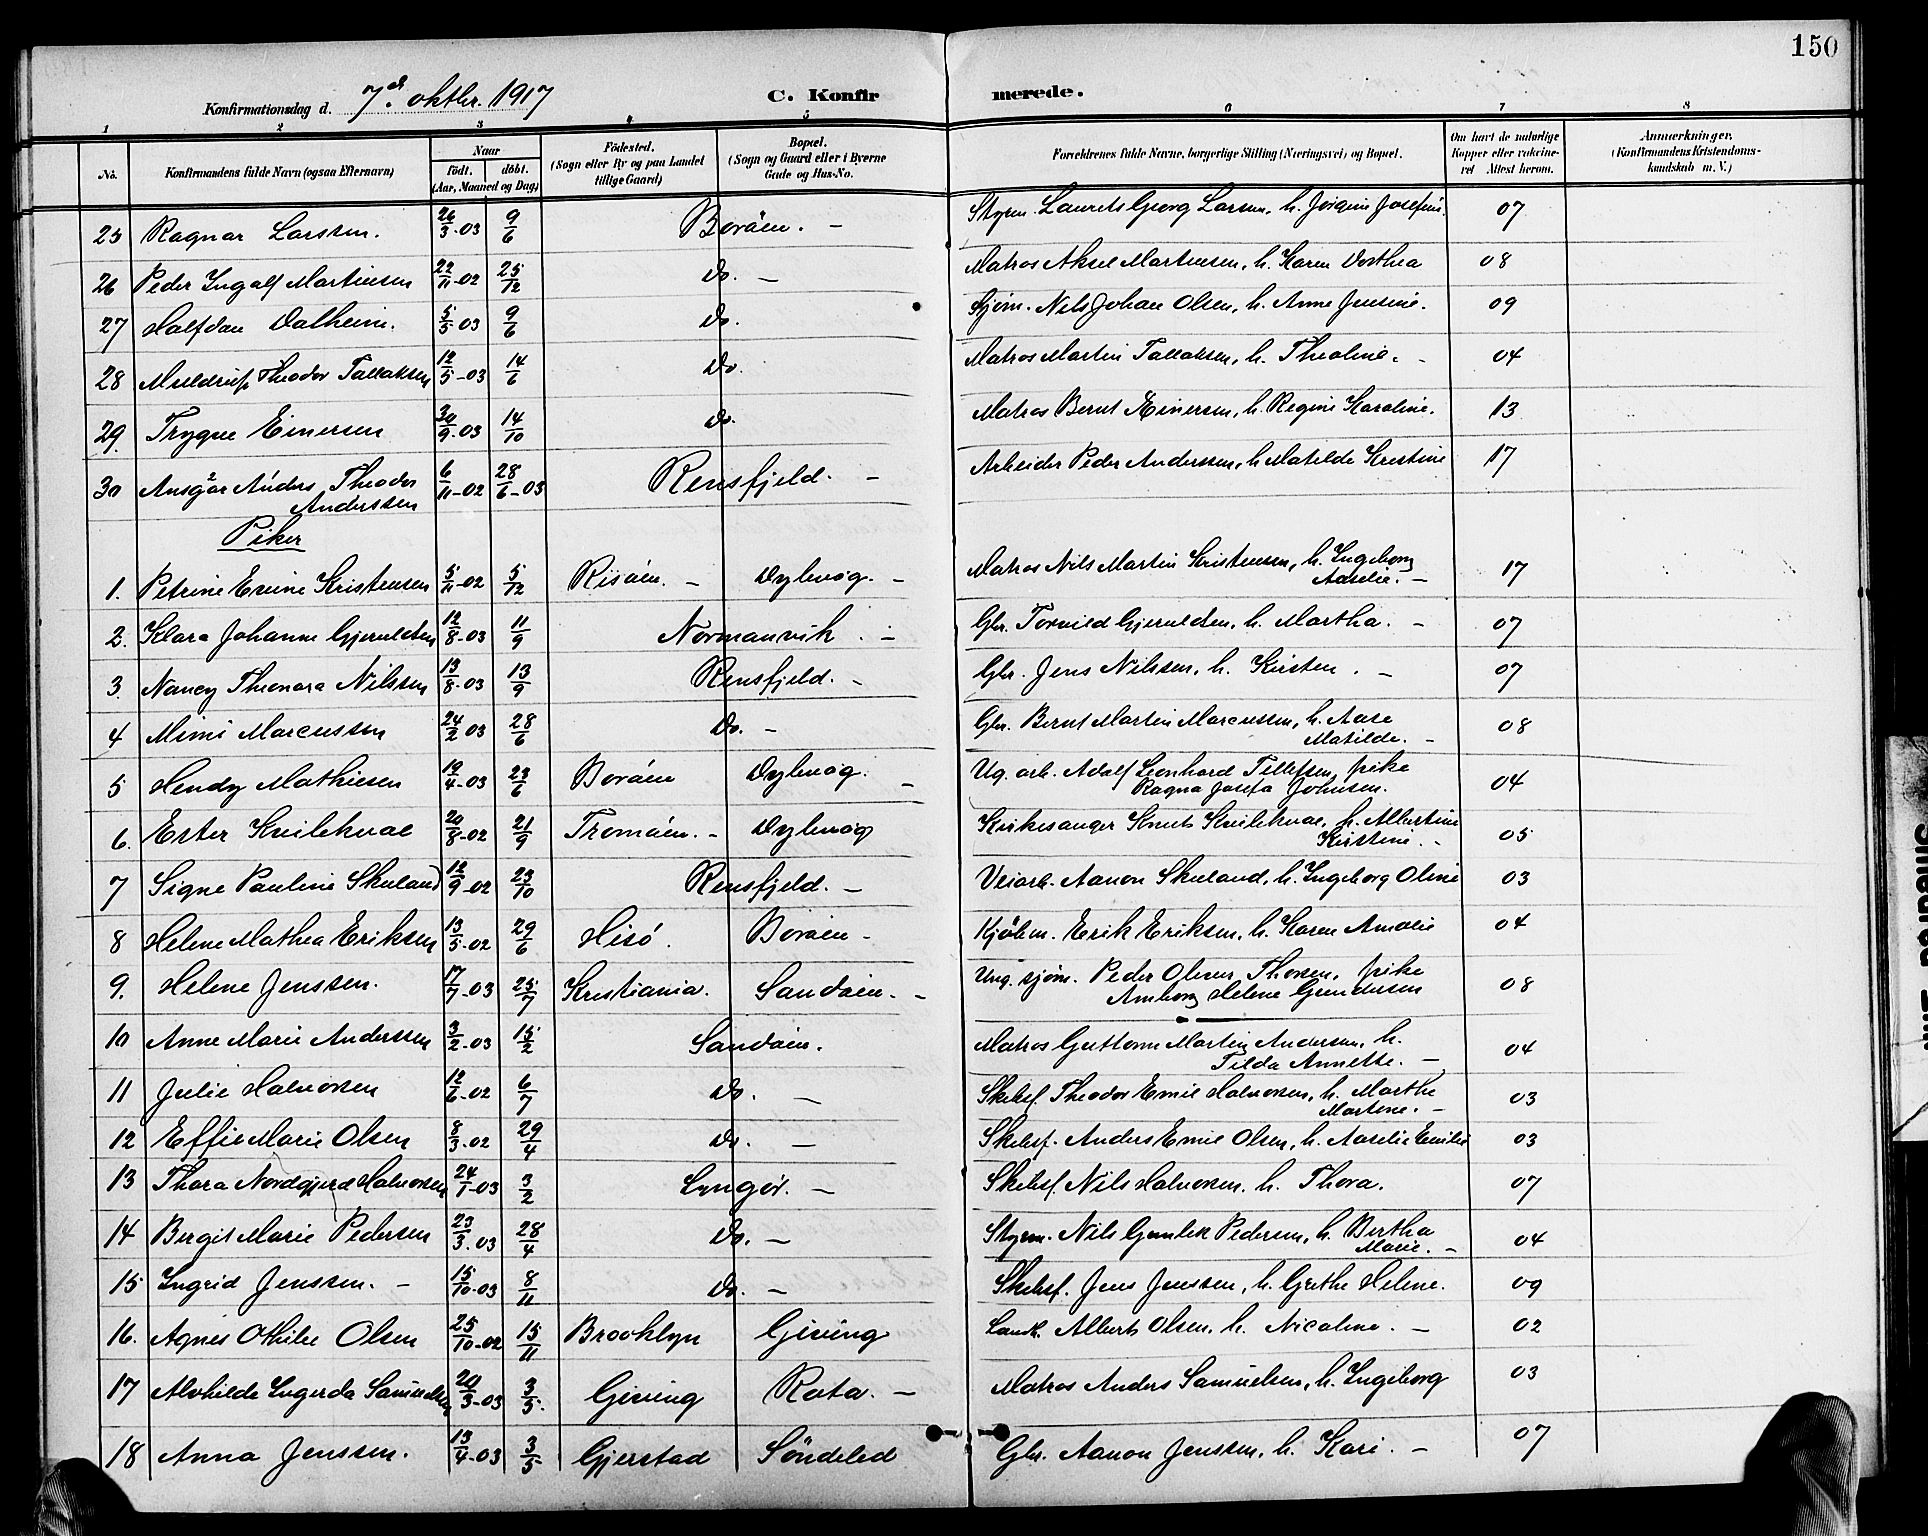 150
Konfirmationsdag d. 7de oktbr. 1917 C. Konfirmerede.
1 2 3 4 5 6 7 8
No. Konfirmandens fulde Navn (ogsaa Efternavn) Naar født. døbt. (Aar, Maaned og Dag) Fødested. (Sogn eller By og paa Landet tillige Gaard) Bopæl. (Sogn og Gaard eller i Byerne Gade og Hus-No. Forældrenes fulde Navne, borgerlige Stilling (Næringsvei) og Bopæl. Om havt de naturlige Kopper eller vakcineret Attest herom. Anmærkninger. (Konfirmandens Kristendomskundskab m. V.)
25 Ragnar Larssen. 26/3-03 9/6 Borøen. – Styrm. Laurits Georg Larsen, h. Jørgine Josefine. 07
26 Peder Ingolf Martinsen 22/11-02 25/12 Do. – Matros Aksel Martinsen, h. Karen Dorthea 08
27 Halfdan Dalheim. 5/5-03 9/6 Do. Sjøm. Nils Johan Olsen, h. Anne Jensine. 09
28 Meldrup Theodor Tallaksen 12/5-03 14/6 Do. Matros Martin Tallaksen, h. Theoline. – 04
29. Trygve Einersen 30/9-03 14/10 Do. Matros Bernt Einersen, h. Regine Karoline. 13
30 Ansgar Anders Theodor Anderssen 6/11-02 28/6-03 Rensfjeld. – Arbeider Peder Anderssen, h. Matilde Kristine 17
Piker
1. Petrine Evine Kristensen 5/11-02 5/12 Risøen. – Dybvog. – Matros Nils Martin Kristensen, h. Ingeborg Aurelie. – 17
2. Klara Johanne Gjeruldsen 12/8-03 11/9 Normanvik. – Gbr. Torvild Gjeruldsen, h. Martha. – 07
3. Nancy Theonora Nilssen 13/8-03 13/9 Rensfjeld. – Gbr. Jens Nilssen, h. Kirsten. – 07
4 Mimi Marcussen 24/2 03 28/6 Do. – Gbr. Bernt Martin Marcussen, h. Aase Matilde. – 08
5 Hendy Mathiesen 19/4-03 23/6 Borøen Dybvog. – Ug. arb. Adolf Leonhard Tellefsen, pike Ragna Josefa Johnsen. 04
6. Ester Kvilekval 20/8-02 21/9 Tromøen. – Dybvog Kirkesanger Knut Kvilekval, h. Albertine Kirstine. – 05
7 Signe Pauline Skuland 12/9-02 23/10 Rensfjeld. – Veiarb. Aanon Skuland, h. Ingeborg Oline 03
8 Helene Mathea Eriksen 13/5-02 29/6 Hisø. Borøen – Kjøbm. Erik Eriksen, h. Karen Amalie 04
9. Helene Jenssen. 17/7-03 25/7 Kristiania. Sandøen. – Ung. sjøm. Peder Oluver Thorsen, pike Amborg Helene Gundersen 08
10 Anne Marie Anderssen 3/2-03 15/2 Sandøen. Matros Guttorm Martin Andersen, h. Tilda Annette. – 04
11 Julie Halvorsen 12/6-02 6/7 Do. – Skibsf. Theodor Emil Halvorsen, h. Marthe Martine. – 03
12 Effie Marie Olsen 8/3-02 29/4 Do. – Skibsf. Anders Emil Olsen, h. Aurelie Emilie 03
13 Thora Nordgjerd Halvorsen 24/1-03 3/2 Lyngør. – Skibsf. Nils Halvorsen. h. Thora. 07
14 Bergit Marie Pedersen 23/3.03 28/4 Do. – Styrm. Nils Pedersen, h. Bertha Marie. – 04
15 Ingrid Jenssen. – 15/10-03 8/11 Do. – Skibsf. Jens Jenssen, h. Grethe Helene. 09
16. Agnes Othilie Olsen 25/10-02 15/11 Brooklyn Gjeving Landh. Albert Olsen. h. Nicoline. – 02
17 Alvhilde Ingerda Samuelsen 20/3-03 3/5. Gjeving Rota. – Matros Anders Samuelsen, h. Ingeborg 03
18 Anna Jenssen. 13/4-03 3/5 Gjerstad Søndeled Gbr. Aanon Jenssen, h. Kari. – 07